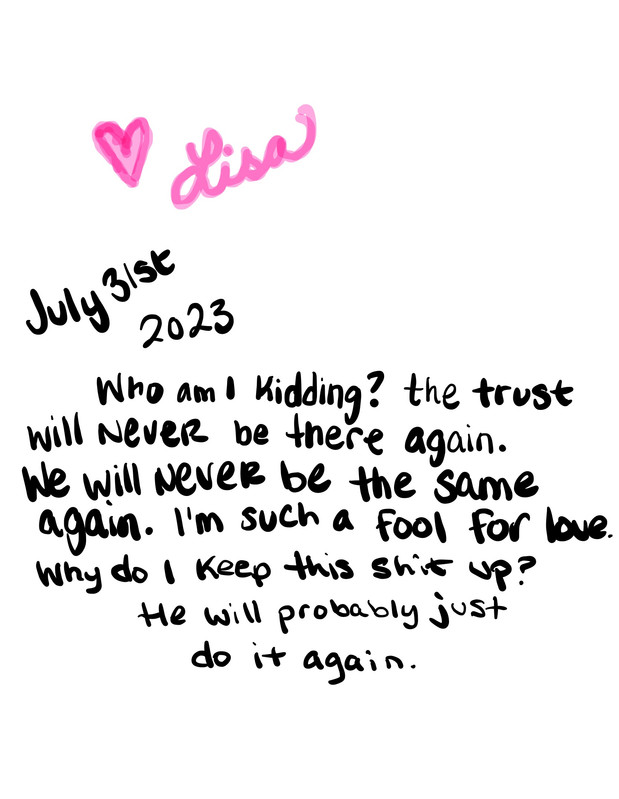 Lisa
July 31st
2023
Who am I kidding? the trust
will NEVER be there again.
We will NEVER be the same
again. I'm such a fool for love.
Why do I keep this shit up?
He will probably just
do it again.